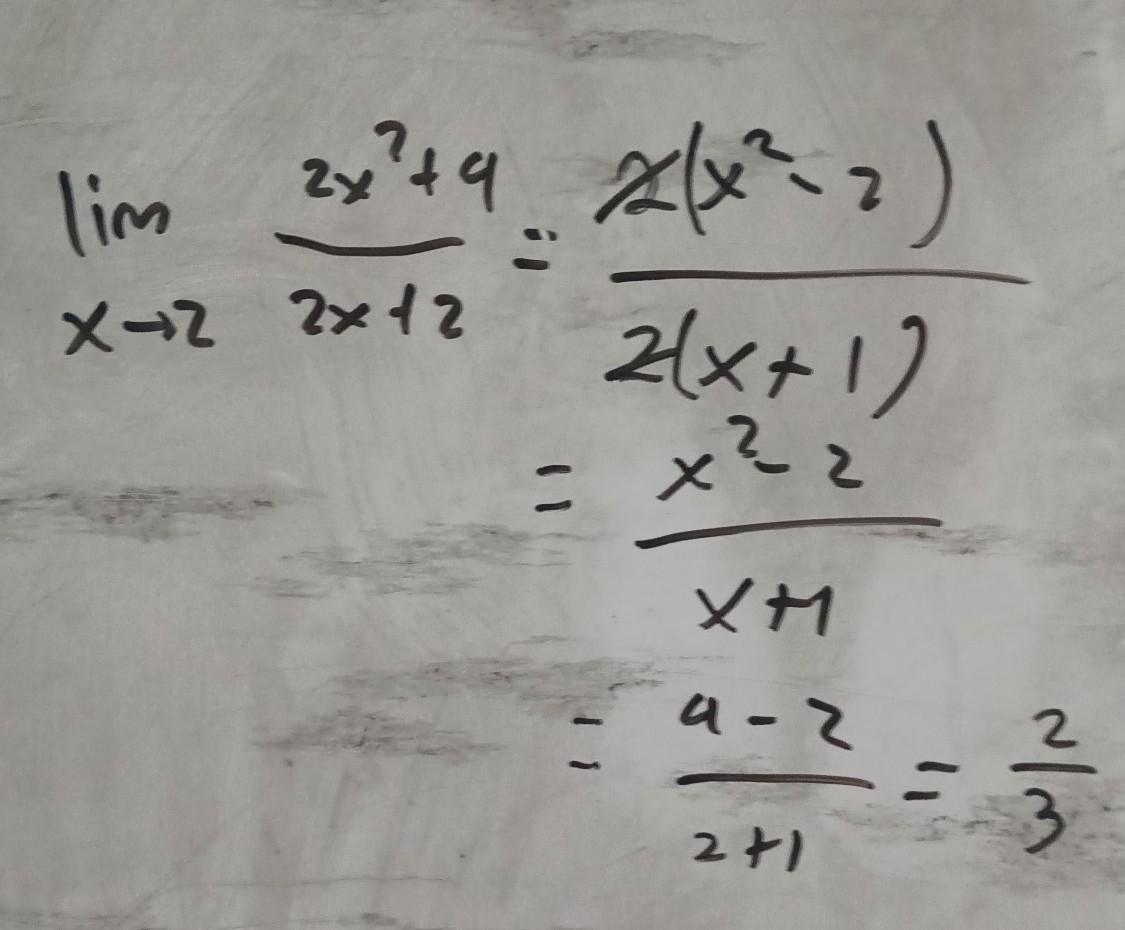 lim x→2 (2x²+4)/(2x+2) = 2(x²-2)/2(x+1)
= (x²-2)/(x+1)
= (4-2)/(2+1) = 2/3